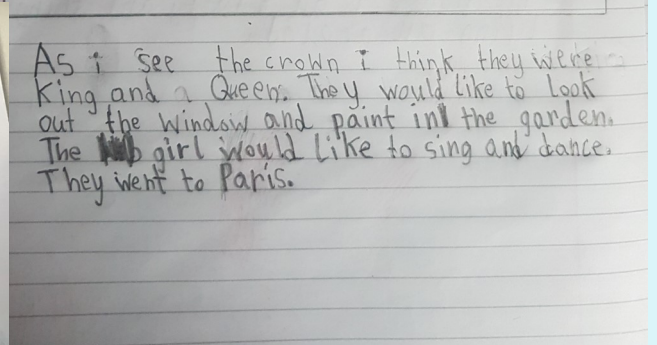 As i see the crown I think they were
King and a Queen. They would like to Look
out the window and paint in the garden.
The girl would like to sing and dance.
They went to Paris.